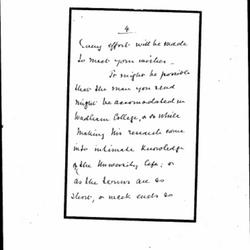 4
Every effort will be made
to meet your wishes.
It might be possible
that the man you send
might be accomodated in
Wadham College, & so while
making his research come
into intimate knowledge
of the University life; or
as the terms are so
short, or each ends so